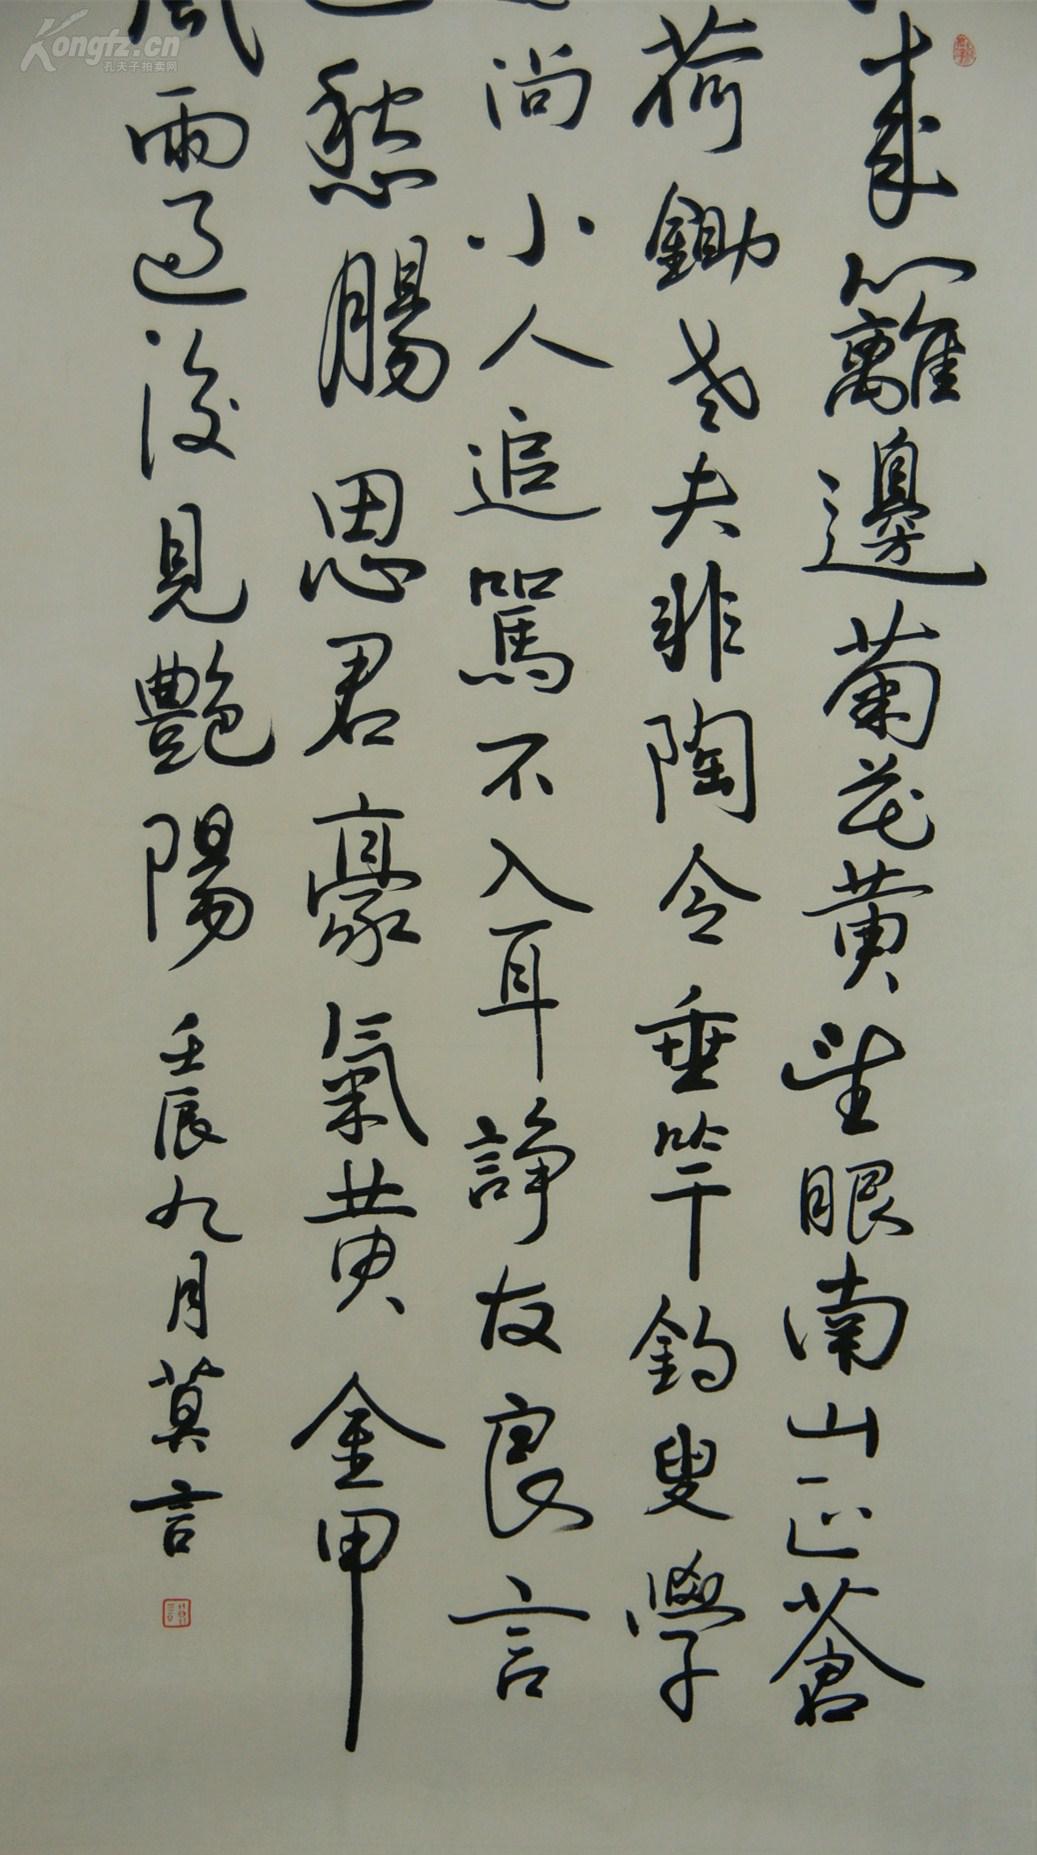 来籬邊菊花黄望眼南山正蒼
荷鋤老夫非陶令垂竿釣叟學
尚小人追駡不入耳諍友良言
愁腸思君豪氣黄金甲
風雨過後見艷陽
壬辰九月莫言
Kongfz.cn
孔夫子拍卖网